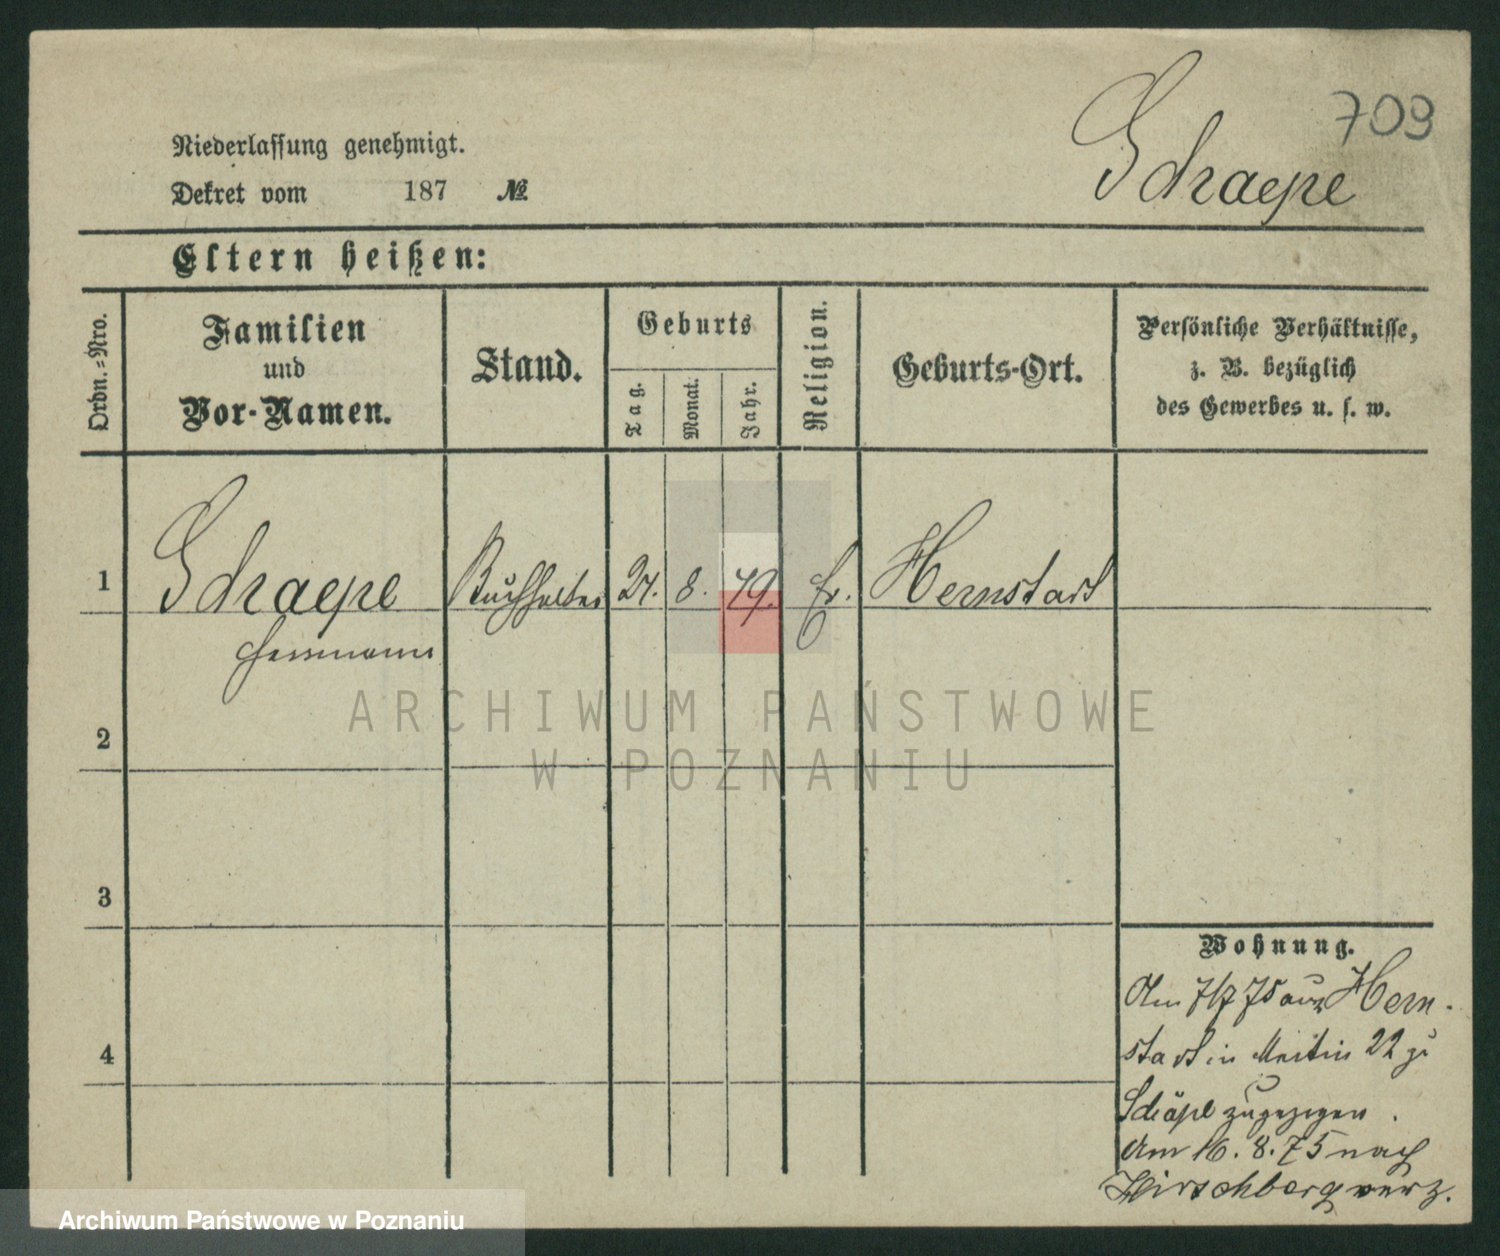 709
Schaepe
Niederlassung genehmigt.
Dekret vom 187 №
Eltern heißen:
Ordn.-Nro.
Familien
und
Vor-Namen.
Stand.
Geburts
Tag.
Monat.
Jahr.
Religion.
Geburts-Ort.
Persönliche Verhältnisse,
z. B. bezüglich
des Gewerbes u. s. w.
1
Schaepe
Herrmann
Buchhalter
24. 8. 49.
Ev.
Hernstadt
2
3
4
Wohnung.
Am 7/7 75 aus Hern-
stadt in 22 zu
Schäpe zugezogen.
Am 16. 8. 75 nach
Hirschberg verz.
ARCHIWUM PAŃSTWOWE
W POZNANIU
Archiwum Państwowe w Poznaniu